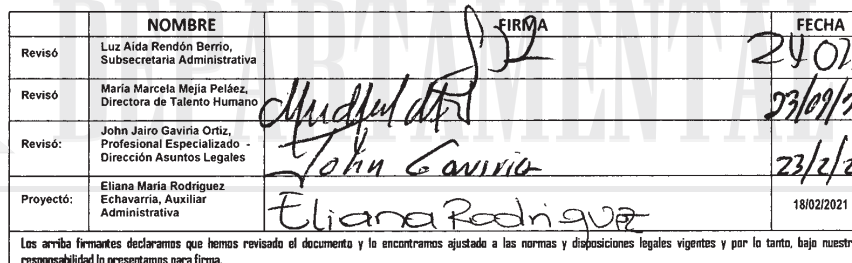 DEPARTAMENTAL
NOMBRE FIRMA FECHA
Revisó Luz Aida Rendón Berrio,
Subsecretaria Administrativa
Revisó María Marcela Mejia Peláez,
Directora de Talento Humano
Revisó: John Jairo Gaviria Ortiz,
Profesional Especializado -
Dirección Asuntos Legales
John Gaviria 23/2/2
Proyectó: Eliana María Rodriguez
Echavarría, Auxiliar
Administrativa
Eliana Rodriguez 18/02/2021
Los arriba firmantes declaramos que hemos revisado el documento y lo encontramos ajustado a las normas y disposiciones legales vigentes y por lo tanto, bajo nuestr
responsabilidad lo presentamos para firma.